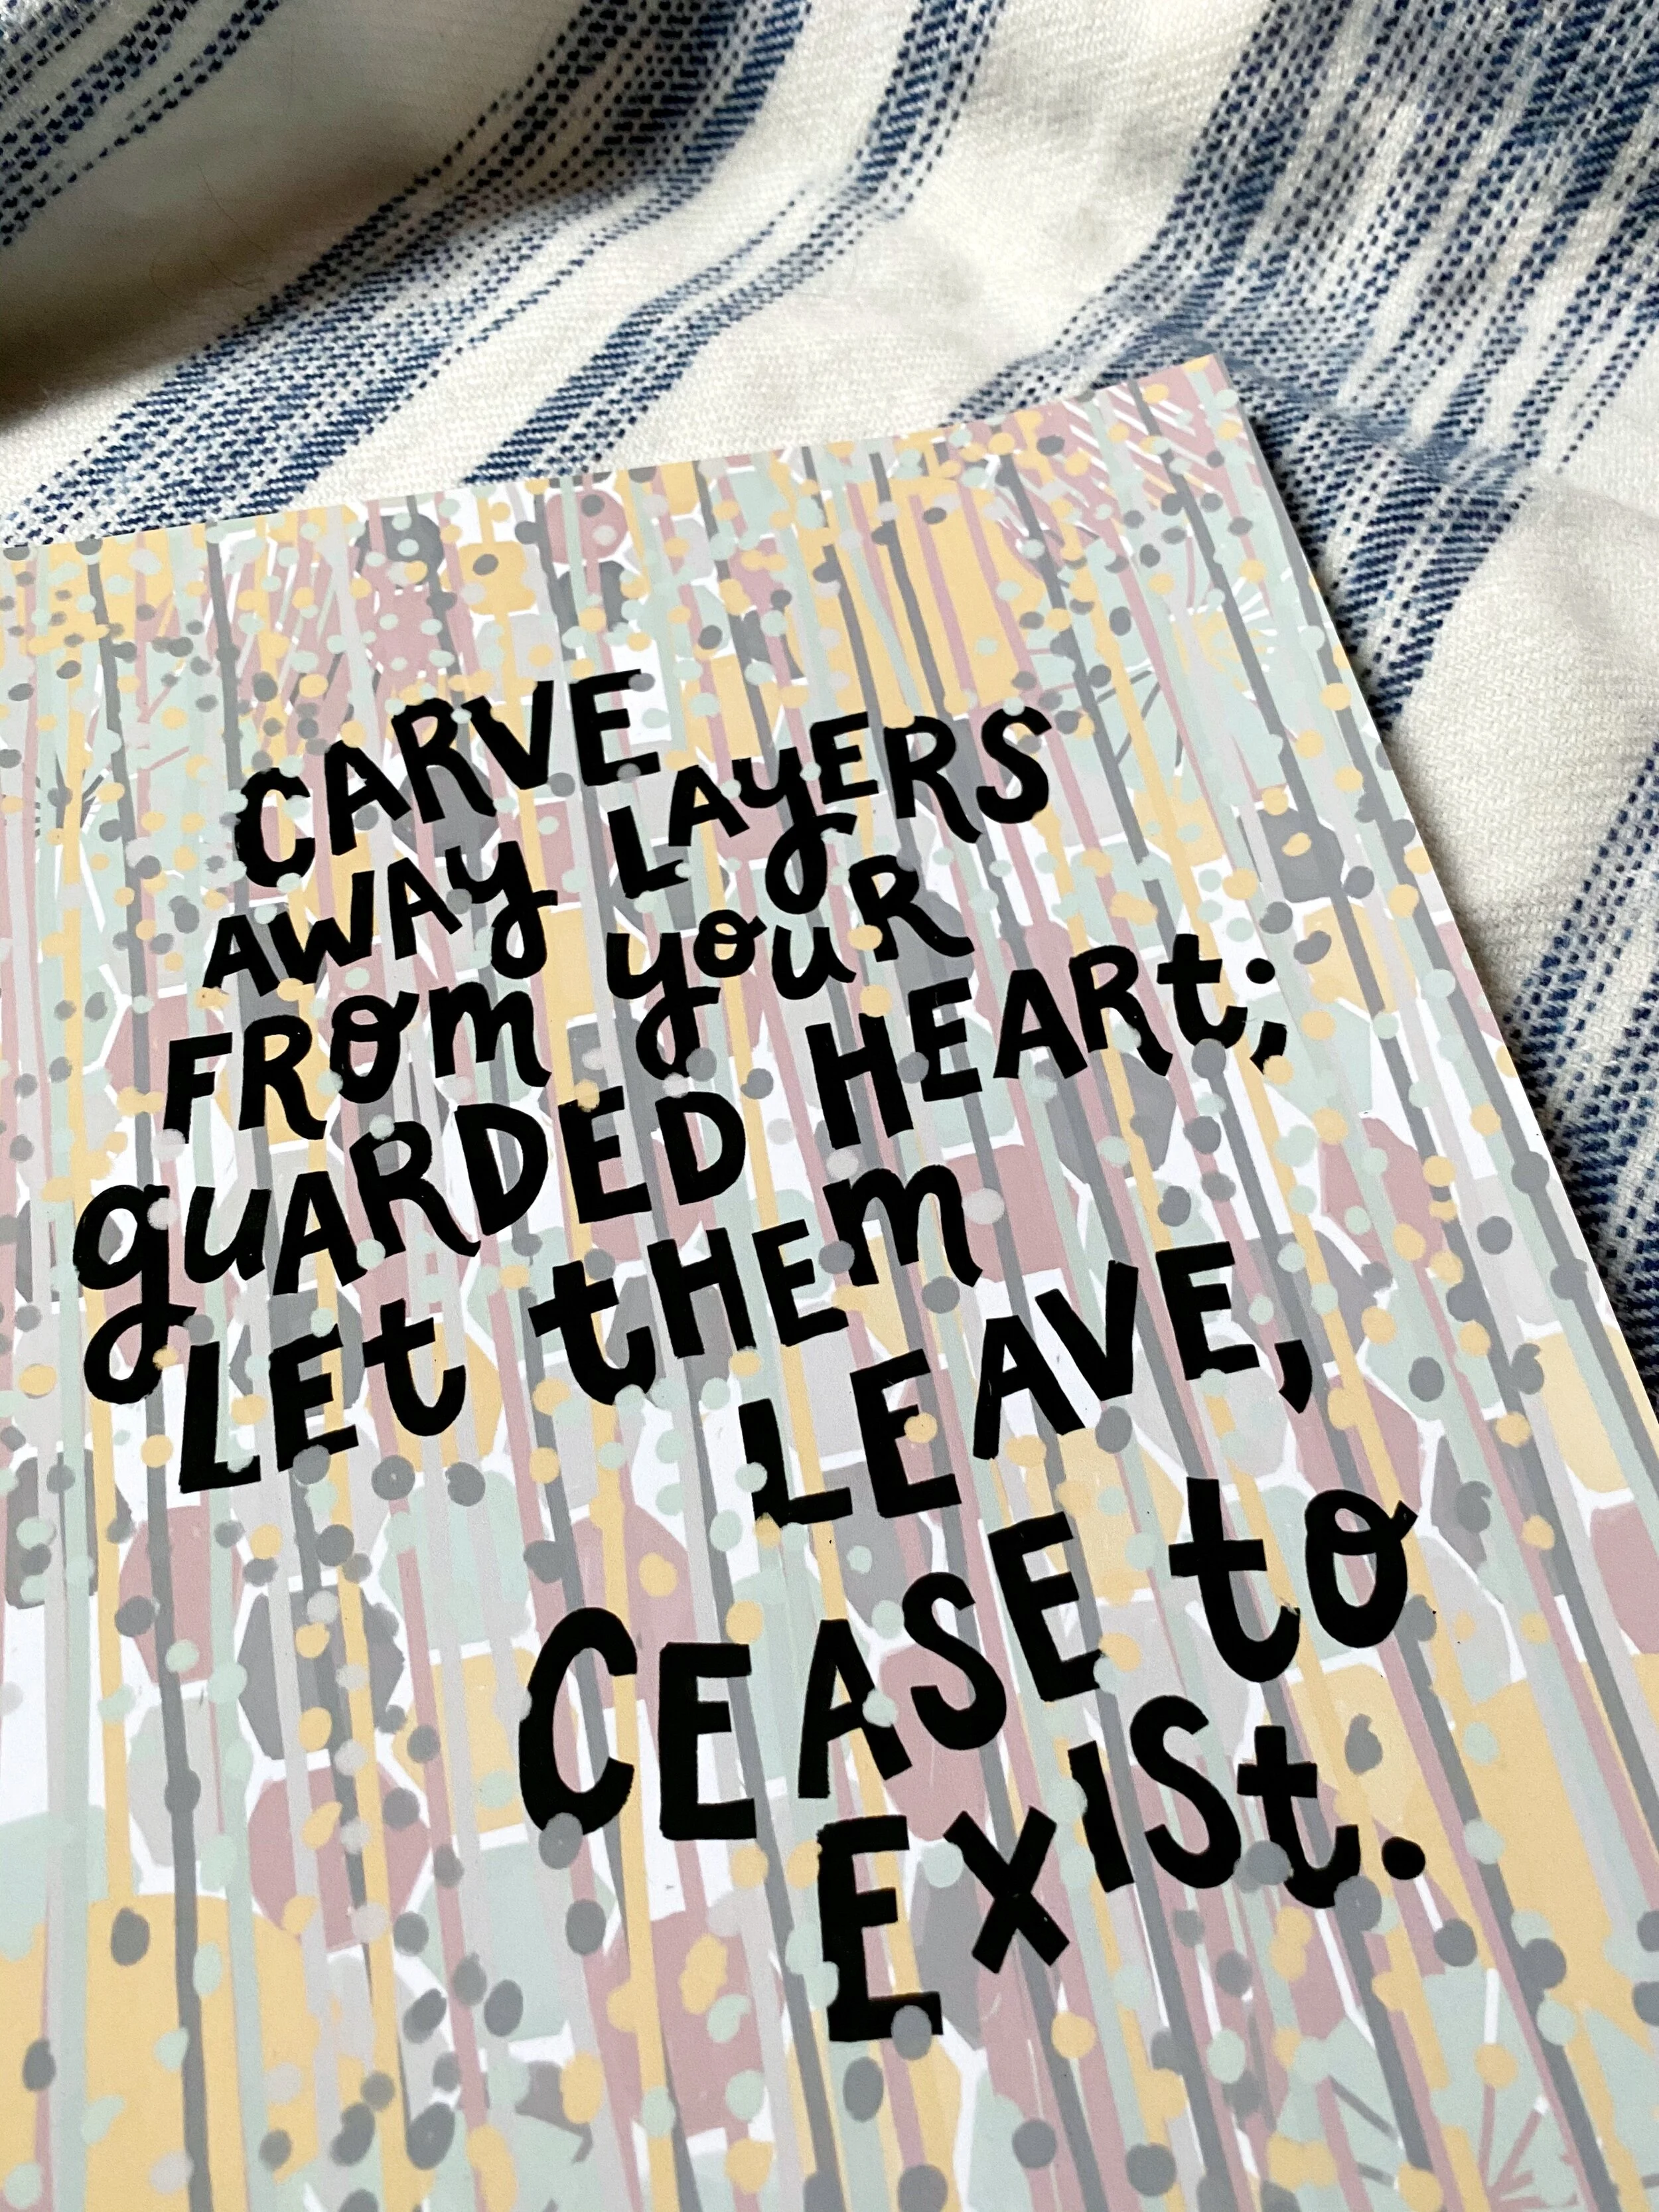 CARVE
AWAY LAYERS
FROM YOUR
GUARDED HEART;
LET THEM
LEAVE,
CEASE TO
EXIST.